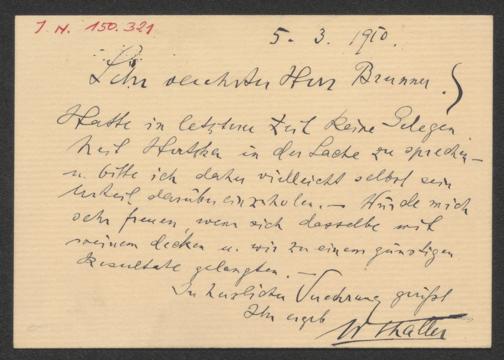 J. N. 150.321
5. 3. 1910.
Sehr verehrter Herr Brunner!
Hatte in letzterer Zeit keine Gelegen
heit Hertzka in der Sache zu sprechen –
u. bitte ich daher vielleicht selbst sein
Urteil darüber einzuholen. – Würde mich
sehr freuen, wenn sich dasselbe mit
meinem decken u. wir zu einem günstigen
Resultate gelangten. –
In herzlicher Verehrung grüßt
Ihr ergeb